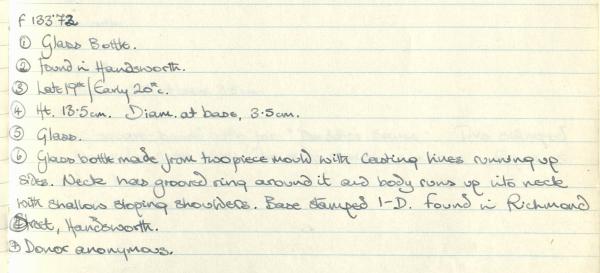 F133'72
① Glass Bottle.
② Found in Handsworth.
③ Late 19th/Early 20th c.
④ Ht. 13.5cm. Diam. at base, 3.5cm.
⑤ Glass.
⑥ Glass bottle made from two piece mould with casting lines running up
sides. Neck has grooved ring around it and body runs up into neck
with shallow sloping shoulders. Base stamped 1-D. Found in Richmond
Street, Handsworth.
⑦ Donor anonymous.